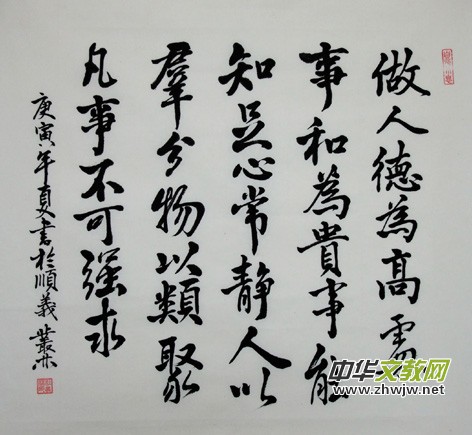 做人德為高處
事和為貴事能
知足心常靜人以
羣分物以類聚
凡事不可强求
庚寅年夏書於順義
中华文教网
www.zhwjw.net